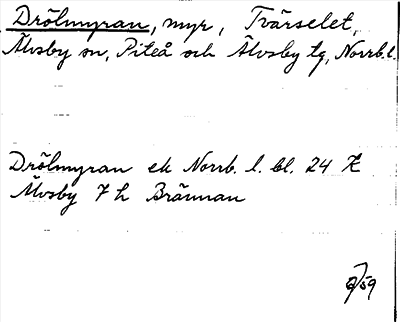 Drölmyran, myr, Tvärselet,
Älvsby sn, Piteå och Älvsby tg, Norrb. l.
Drölmyran ek Norrb. l. bl. 24 K
Älvsby 7 h Brännan
/59